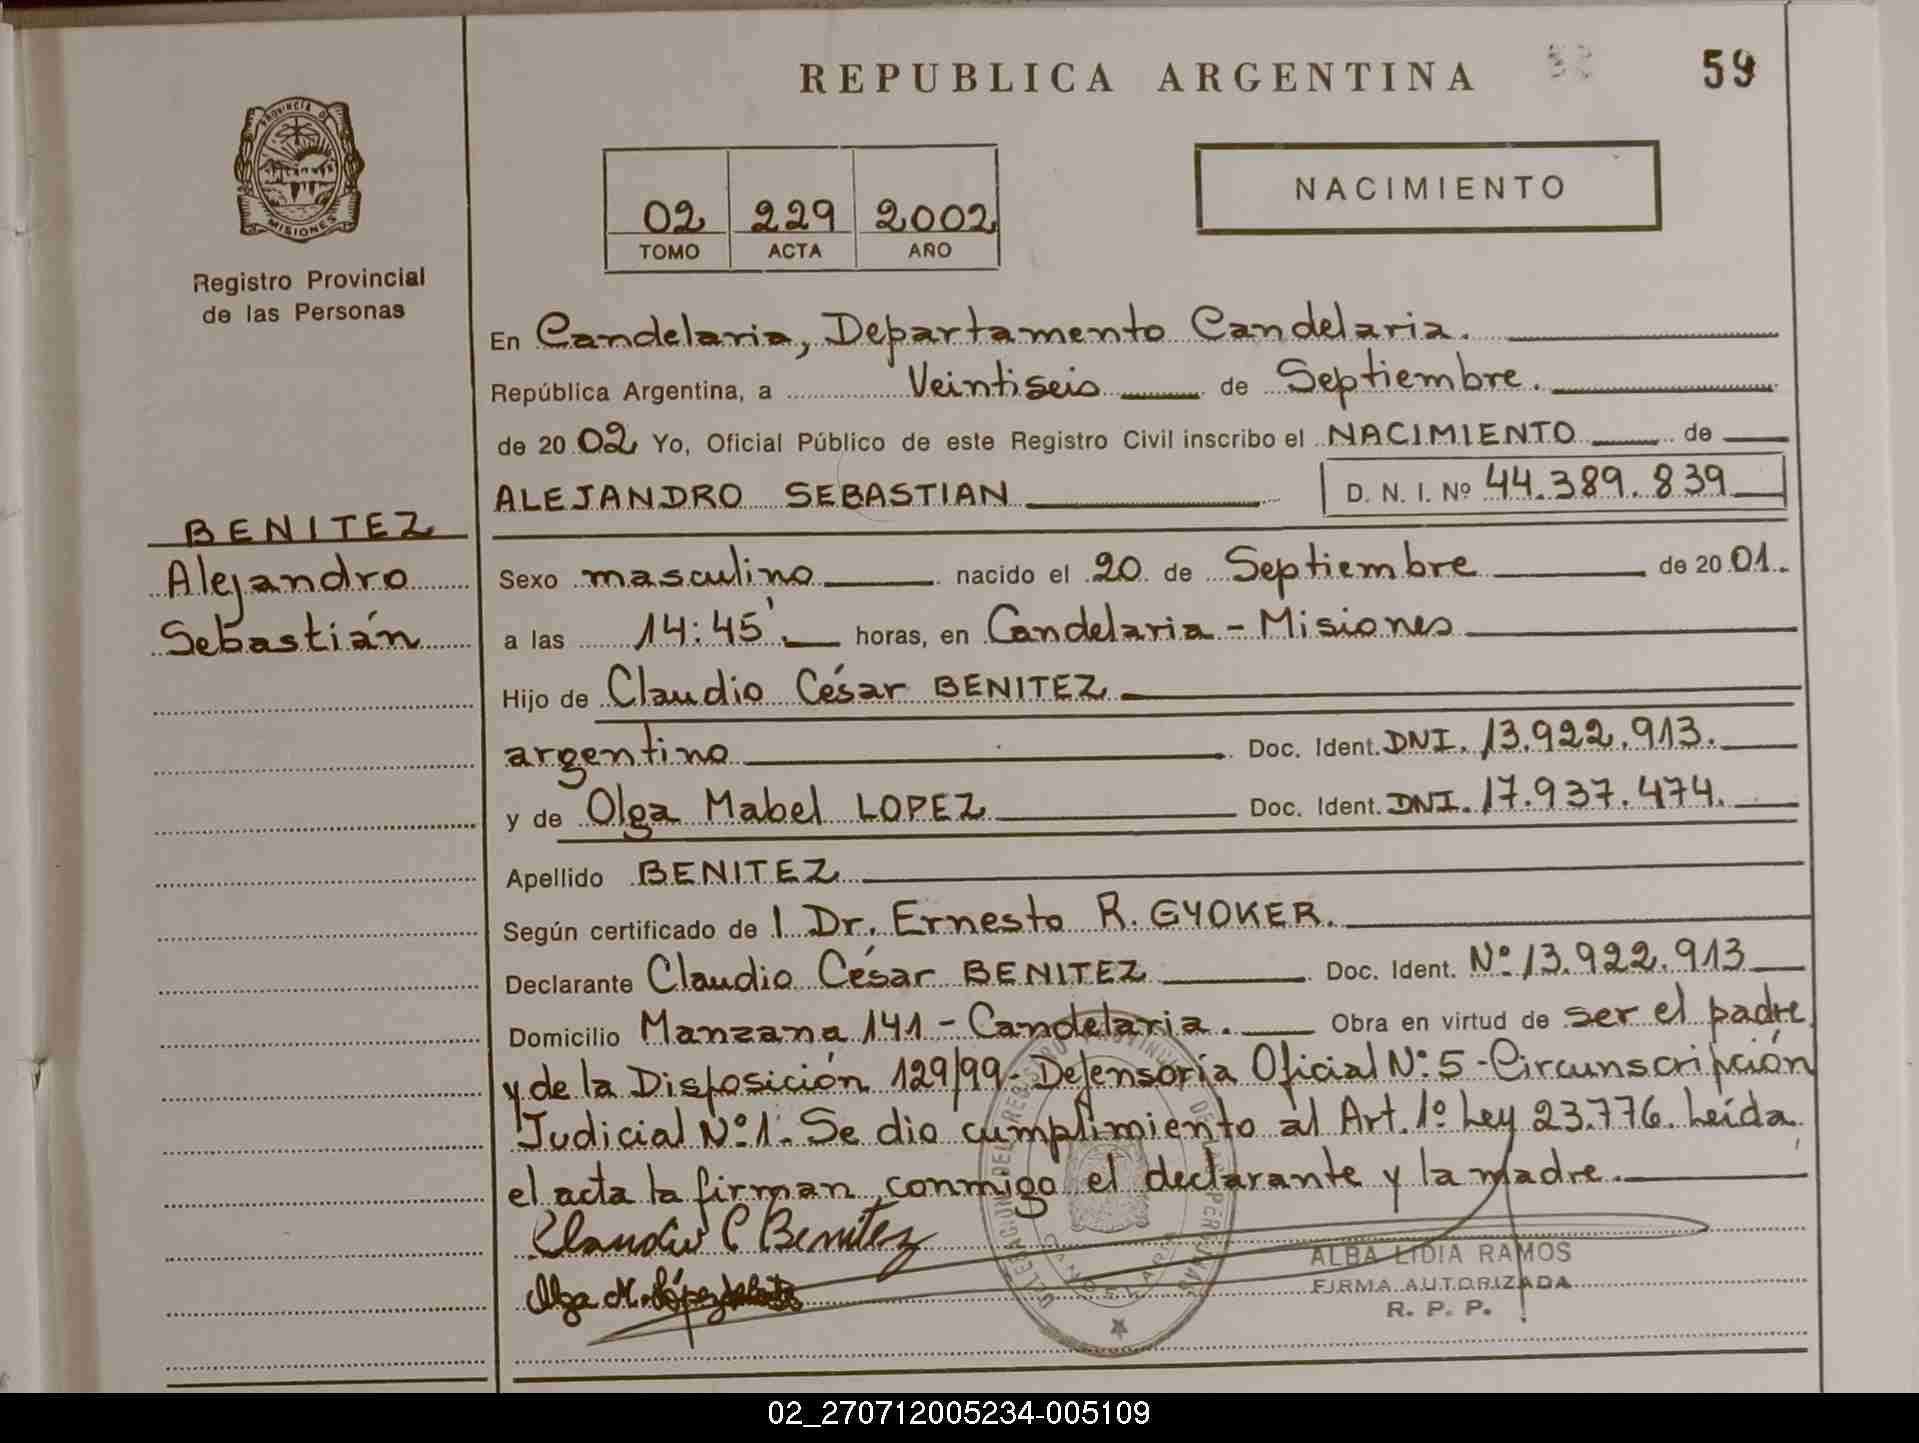 REPUBLICA ARGENTINA
59
PROVINCIA DE
MISIONES
Registro Provincial
de las Personas
02 229 2002
TOMO ACTA AÑO
NACIMIENTO
En Candelaria, Departamento Candelaria.
República Argentina, a Veintiseis de Septiembre.
de 20 02 Yo, Oficial Público de este Registro Civil inscribo el NACIMIENTO de
ALEJANDRO SEBASTIAN D. N. I. Nº 44.389.839
BENITEZ
Alejandro
Sebastián
Sexo masculino nacido el 20 de Septiembre de 20 01.
a las 14:45' horas, en Candelaria - Misiones
Hijo de Claudio César BENITEZ
argentino Doc. Ident. DNI. 13.922.913.
y de Olga Mabel LOPEZ Doc. Ident. DNI. 17.937.474.
Apellido BENITEZ
Según certificado de l Dr. Ernesto R. GYOKER.
Declarante Claudio César BENITEZ Doc. Ident. Nº 13.922.913
Domicilio Manzana 141 - Candelaria. Obra en virtud de ser el padre
y de la Disposición 129/99 - Defensoría Oficial Nº 5 - Circunscripción
Judicial Nº 1. Se dio cumplimiento al Art. 1º Ley 23.776. Leída
el acta la firman conmigo el declarante y la madre.
Claudio C Benitez
Olga M. López
ALBA LIDIA RAMOS
FIRMA AUTORIZADA
R. P. P.
CANDELARIA
02_270712005234-005109